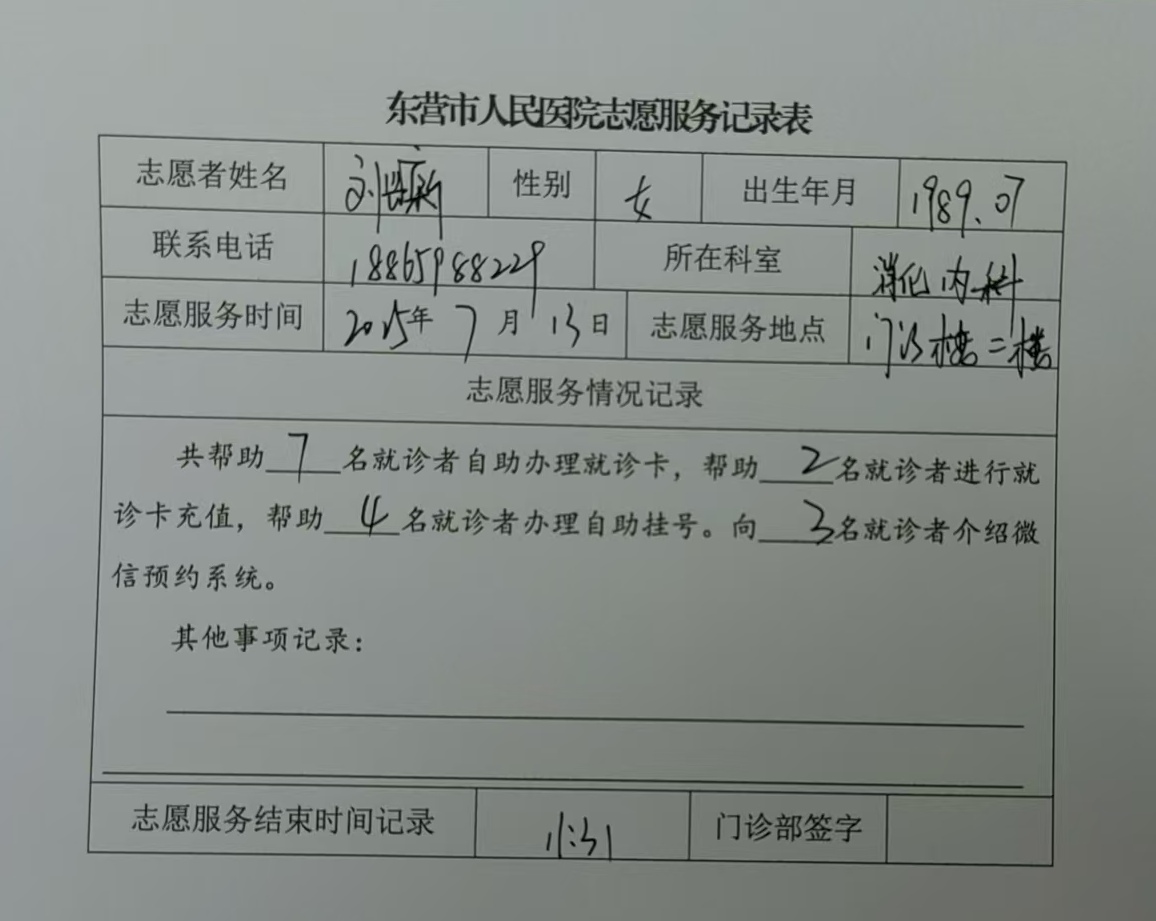 东营市人民医院志愿服务记录表
志愿者姓名 刘 性别 女 出生年月 1989.07
联系电话 18865988229 所在科室 消化内科
志愿服务时间 2025年 7 月 13 日 志愿服务地点 门诊楼二楼
志愿服务情况记录
共帮助 7 名就诊者自助办理就诊卡，帮助 2 名就诊者进行就
诊卡充值，帮助 4 名就诊者办理自助挂号。向 3 名就诊者介绍微
信预约系统。
其他事项记录：
志愿服务结束时间记录 11:31 门诊部签字